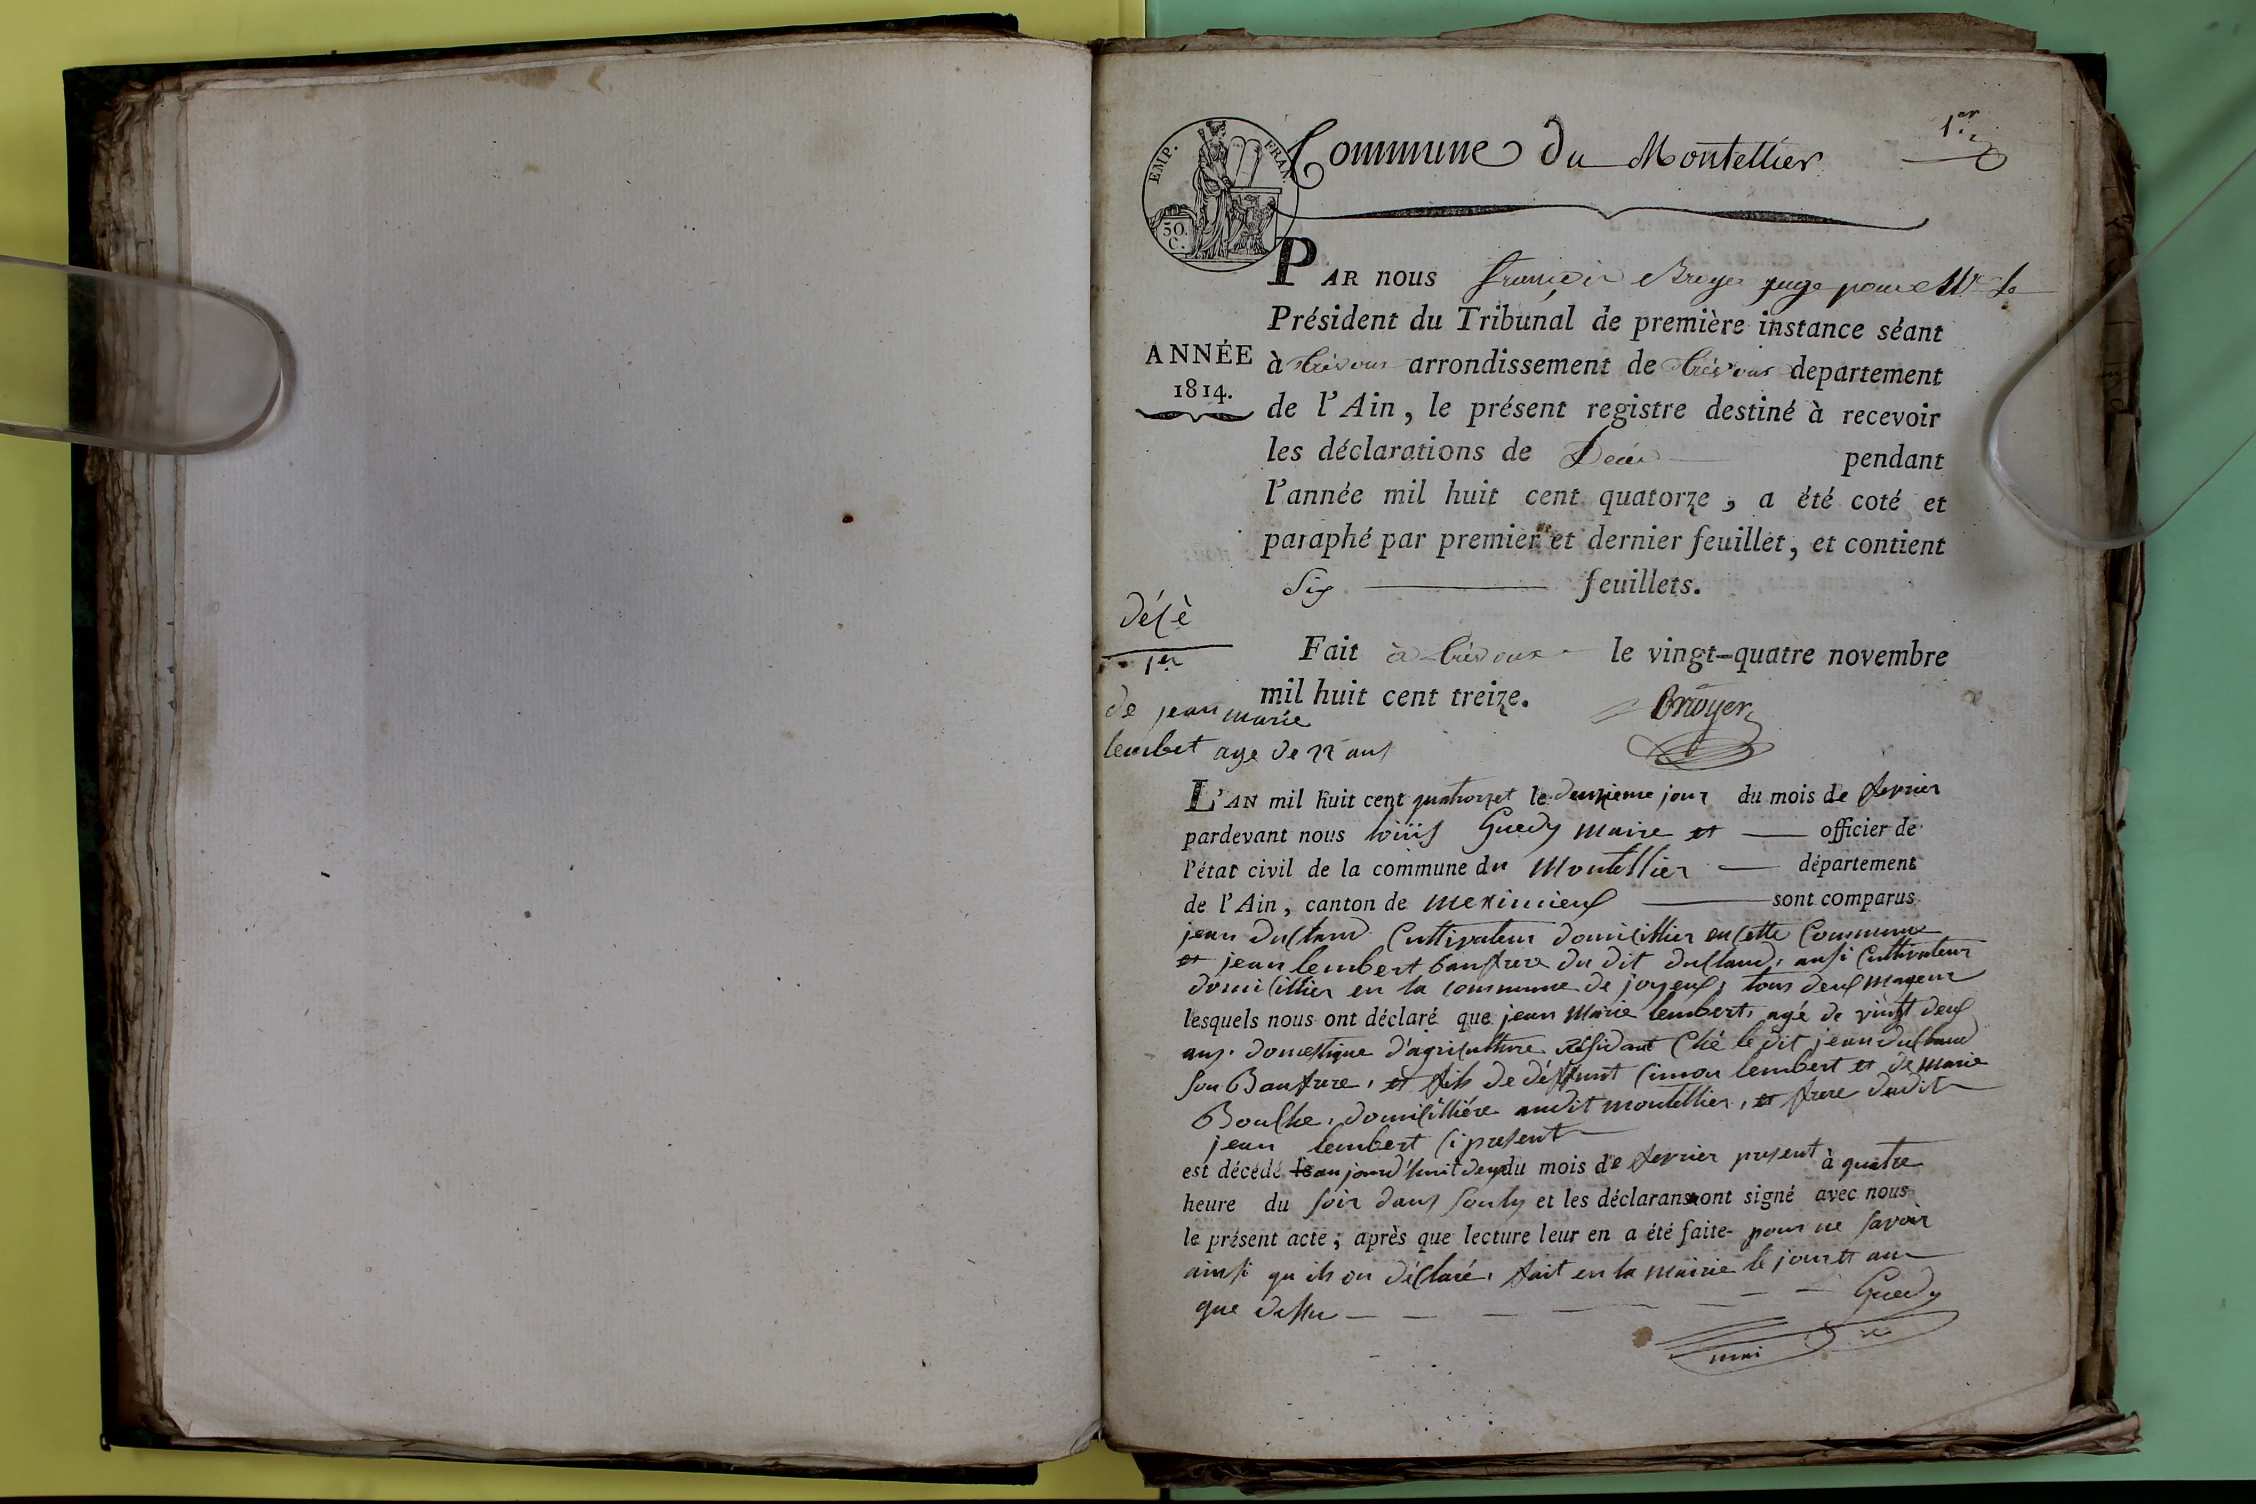 1er
EMP. FRAN.
50.
C.
Commune du Montellier
PAR nous françois Bruyer juge pour Mr le
Président du Tribunal de première instance séant
ANNÉE
1814.
à Trévoux arrondissement de Trévoux departement
de l'Ain, le présent registre destiné à recevoir
les déclarations de Décès pendant
l'année mil huit cent quatorze, a été coté et
paraphé par premier et dernier feuillet, et contient
Six feuillets.
Fait à Trévoux le vingt-quatre novembre
mil huit cent treize.
Bruyer
déscè
1er
de jean marie
lembert age de 22 ans
L'AN mil huit cent quatorzet le deuxieme jour du mois de fevrier
pardevant nous loüis Guedy maire et officier de
l'état civil de la commune du Montellier département
de l'Ain, canton de meximieux sont comparus
jean duclaud Cultivateur domicillier en cette Commune
et jean lembert baufrere du dit duclaud, ausi Cultivateur
domicillier en la commune de joyeux, tous deux mageur
lesquels nous ont déclaré que jean Marie lembert, agé de vingt deux
ans. domestique d'agriculture résidant Ché le dit jean duclaud
son Baufrere, et fils de déffunt Cimon lembert et de marie
Bouche, domicilliére audit montellier, et frere dudit
jean lembert Ci present
est décédé le aujourd'huit deux du mois de fevrier present à quatre
heure du soir dans et les déclarans ont signé avec nous
le présent acte; après que lecture leur en a été faite pour ne savoir
ainsi qu ils on déclaré, fait en la mairie le jour et an
que dessu
Guedy